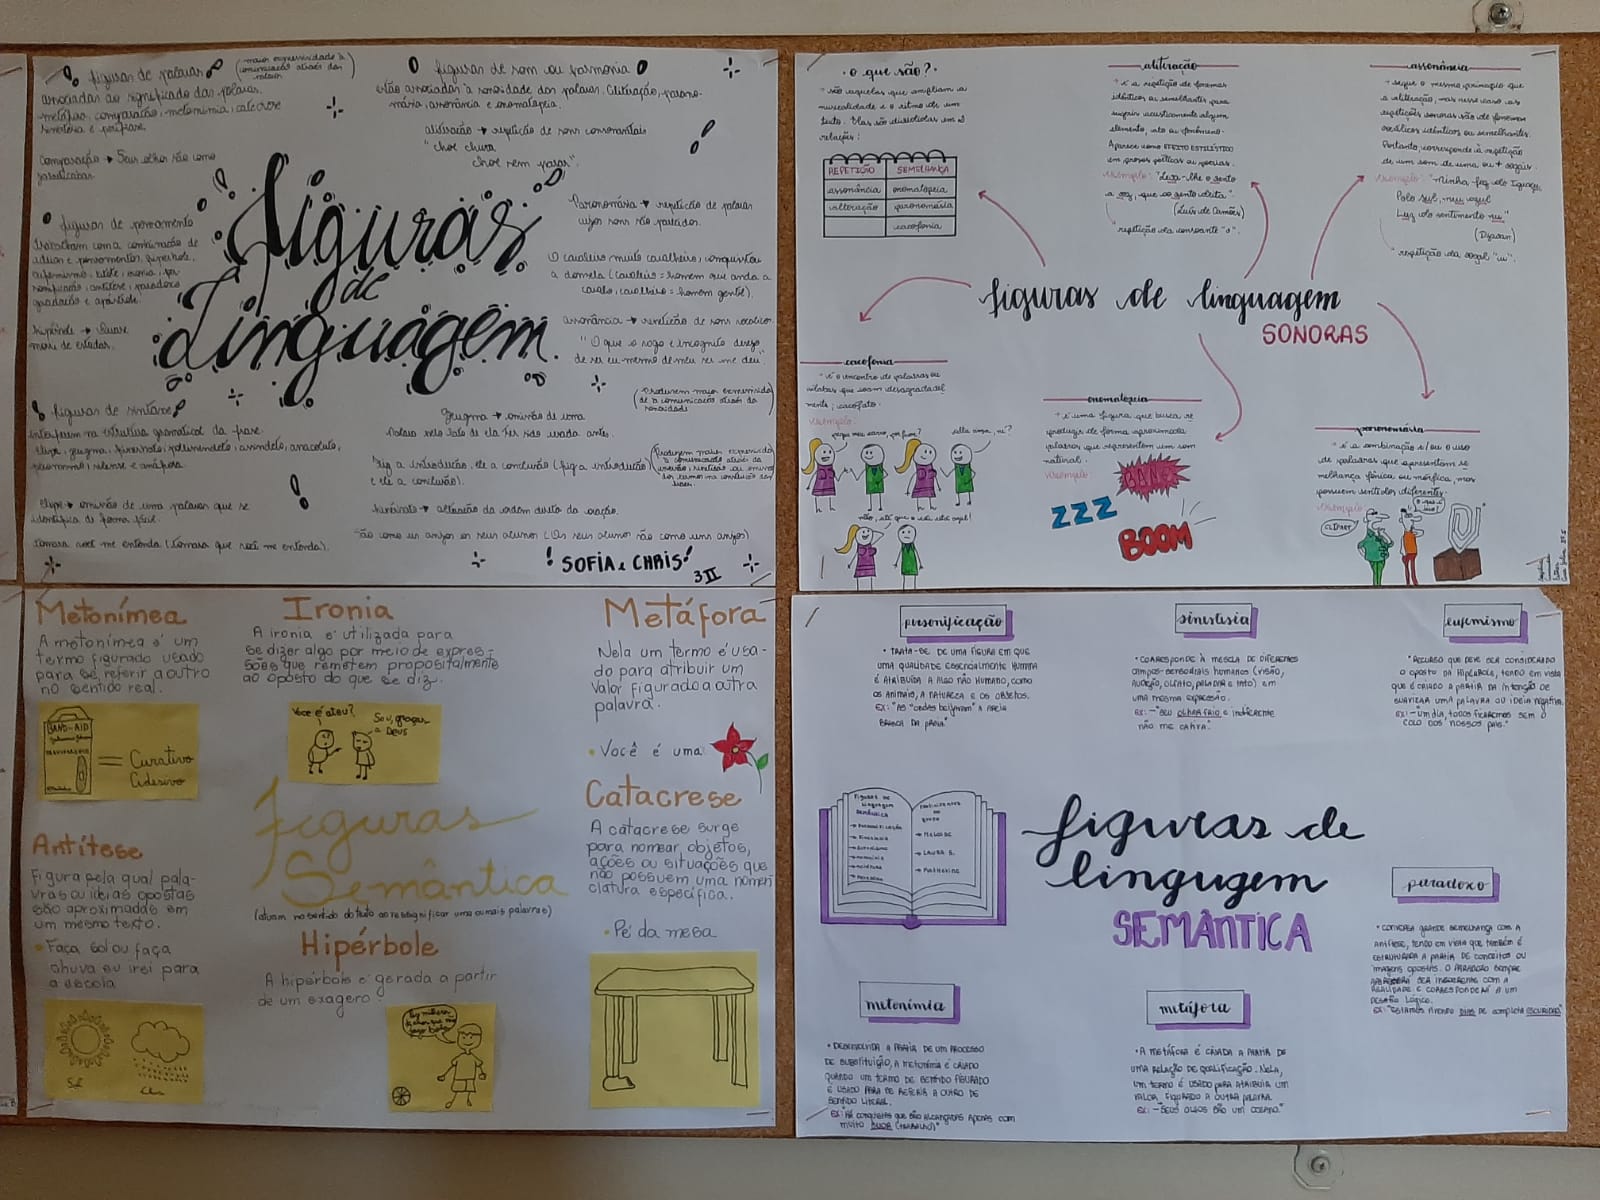 figuras de palavras
(maior expressividade à
comunicação através das
palavras)
associadas ao significado das palavras.
metáfora, comparação, metonímia, catacrese
sinestesia e perífrase.
comparação → Seus olhos são como
jabuticabas.
figuras de som ou harmonia
estão associadas à sonoridade das palavras. Aliteração, parono-
másia, assonância e onomatopeia.
aliteração → repetição de sons consonantais
"chove chuva
chove sem parar".
figuras de pensamento
trabalham com a combinação de
ideias e pensamentos, hipérbole,
eufemismo, litote, ironia, per-
sonificação, antítese, paradoxo
gradação e apóstrofe.
hipérbole → Quase
morri de estudar.
figuras
de
Linguagem
Paronomásia → repetição de palavras
cujos sons são parecidos.
O cavaleiro muito cavalheiro, conquistou
a donzela (cavaleiro = homem que anda a
cavalo, cavalheiro = homem gentil).
assonância → repetição de sons vocálicos.
"O que o vago e incógnito desejo
de ser eu mesmo de meu ser me deu"
(Produzem maior expressivida
de à comunicação através da
sonoridade)
figuras de sintaxe
interferem na estrutura gramatical da frase.
Elipse, zeugma, hipérbato, polissíndeto, assíndeto, anacoluto,
pleonasmo, silepse e anáfora.
zeugma → omissão de uma
palavra pelo fato de ela ter sido usada antes.
Fiz a introdução, ele a conclusão (fiz a introdução
e ele a conclusão).
elipse → omissão de uma palavra que se
identifica de forma fácil.
tomara você me entenda (tomara que você me entenda).
hipérbato → alteração da ordem direta da oração.
São como uns anjos os seus alunos (Os seus alunos são como uns anjos)
SOFIA e CHRIS!
3II
• O que são? •
• são aquelas que ampliam a
musicalidade e o ritmo de um
texto. Elas são divididas em 2
relações:
REPETIÇÃO SEMELHANÇA
assonância onomatopeia
aliteração paronomásia
cacofonia
aliteração
• é a repetição de fonemas
idênticos ou semelhantes para
sugerir acusticamente algum
elemento, ato ou fenômeno.
Aparece como EFEITO ESTILÍSTICO
em prosas poéticas ou poesias.
Exemplo: "Leva-lhe o vento
a voz, que ao vento deita".
(Luís de Camões)
repetição da consoante "v".
assonância
• segue o mesmo princípio que
a aliteração, mas nesse caso as
repetições sonoras são de fonemas
vocálicos idênticos ou semelhantes.
Portanto, corresponde à repetição
de um som de uma ou + vogais.
Exemplo: "Minha foz do Iguaçu
Polo sul, meu azul
Luz do sentimento nu"
(Djavan)
repetição da vogal "u".
figuras de linguagem
SONORAS
cacofonia
• é o encontro de palavras ou
sílabas que soam desagradavel
mente; cacofato.
Exemplo:
onomatopeia
• é uma figura que busca re
produzir de forma aproximada
palavras que representem um som
natural.
Exemplo:
BANG
ZZZ
BOOM
paronomásia
• é a combinação e/ou o uso
de palavras que apresentam se
melhança fônica ou mórfica, mas
possuem sentidos diferentes.
Exemplo:
CLIPART
Metonímea
A metonímea é um
termo figurado usado
para se referir a outro
no sentido real.
BAND-AID
= Curativo
Adesivo
Ironia
A ironia é utilizada para
se dizer algo por meio de expres-
sões que remetem propositalmente
ao oposto do que se diz.
Você é ateu?
Sou, graças
a Deus
Metáfora
Nela um termo é usa-
do para atribuir um
valor figurado a outra
palavra.
• Você é uma
Antítese
Figura pela qual pala-
vras ou ideias opostas
são aproximadas em
um mesmo texto.
• Faça sol ou faça
chuva eu irei para
a escola
Figuras
Semântica
(atuam no sentido do texto ao ressignificar uma ou mais palavras)
Catacrese
A catacrese surge
para nomear, objetos,
ações ou situações que
não possuem uma nomen
clatura específica.
• Pé da mesa
Hipérbole
A hipérbole é gerada a partir
de um exagero.
personificação
• TRATA-SE DE UMA FIGURA EM QUE
UMA QUALIDADE ESSENCIALMENTE HUMANA
É ATRIBUÍDA A ALGO NÃO HUMANO, COMO
OS ANIMAIS, A NATUREZA E OS OBJETOS.
EX: "AS "ONDAS BEIJAVAM" A AREIA
BRANCA DA PRAIA"
sinestesia
• CORRESPONDE À MESCLA DE DIFERENTES
CAMPOS-SENSORIAIS HUMANOS (VISÃO,
AUDIÇÃO, OLFATO, PALADAR E TATO) EM
UMA MESMA EXPRESSÃO.
EX: - "SEU OLHAR FRIO E INDIFERENTE
NÃO ME CATIVA."
eufemismo
• RECURSO QUE DEVE SER CONSIDERADO
O OPOSTO DA HIPÉRBOLE, TENDO EM VISTA
QUE É CRIADO A PARTIR DA INTENÇÃO DE
SUAVIZAR UMA PALAVRA OU IDEIA NEGATIVA.
EX: - "UM DIA, TODOS FICAREMOS SEM O
COLO DOS NOSSOS PAIS."
FIGURAS DE
LINGUAGEM
SEMÂNTICA
→ PERSONIFICAÇÃO
→ SINESTESIA
→ EUFEMISMO
→ METONÍMIA
→ METÁFORA
→ PARADOXO
figuras de
lingugem
SEMÂNTICA
paradoxo
• CONTÉM GRANDE SEMELHANÇA COM A
ANTÍTESE, TENDO EM VISTA QUE TAMBÉM É
ESTRUTURADA A PARTIR DE CONCEITOS OU
IMAGENS OPOSTAS. O PARADOXO SEMPRE
SER INCOERENTE COM A
REALIDADE E CORRESPONDERÁ A UM
DESAFIO LÓGICO.
EX: "ESTAMOS VIVENDO DIAS DE COMPLETA ESCURIDÃO"
metonímia
• DESENVOLVIDA A PARTIR DE UM PROCESSO
DE SUBSTITUIÇÃO, A METONÍMIA É CRIADO
QUANDO UM TERMO DE SENTIDO FIGURADO
É USADO PARA SE REFERIR A OUTRO DE
SENTIDO LITERAL.
EX: "HÁ CONQUISTAS QUE SÃO ALCANÇADAS APENAS COM
MUITO SUOR (TRABALHO)"
metáfora
• A METÁFORA É CRIADA A PARTIR DE
UMA RELAÇÃO DE QUALIFICAÇÃO. NELA,
UM TERMO É USADO PARA ATRIBUIR UM
VALOR FIGURADO A OUTRA PALAVRA.
EX: - "SEUS OLHOS SÃO UM OCEANO."